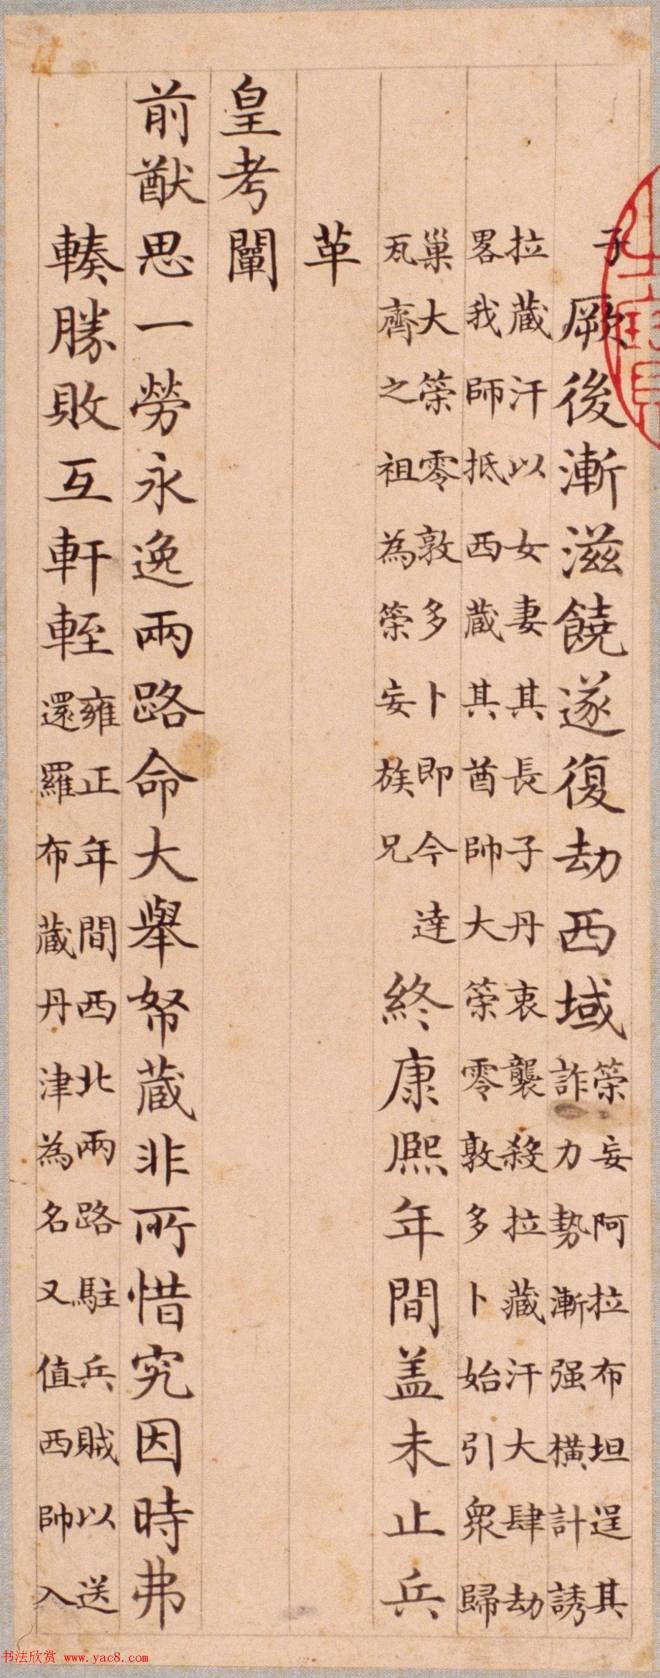 子
厥後漸滋饒遂復劫西域
筞妄阿拉布坦逞其
詐力勢漸强橫計誘
拉藏汗以女妻其長子丹衷襲殺拉藏汗大肆劫
畧我師抵西藏其酋帥大筞零敦多卜始引衆歸
巢大筞零敦多卜即今達
瓦齊之祖為筞妄族兄
終康熙年間盖未止兵
革
皇考闡
前猷思一勞永逸兩路命大舉帑藏非所惜究因時弗
輳勝敗互軒輊
雍正年間西北兩路駐兵賊以送
還羅布藏丹津為名又值西帥入
书法欣赏 www.yac8.com